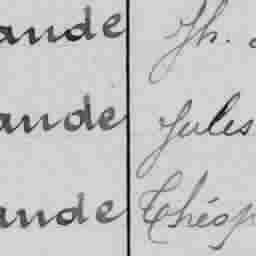 ande Jh.
ande Jules
ande Thésp